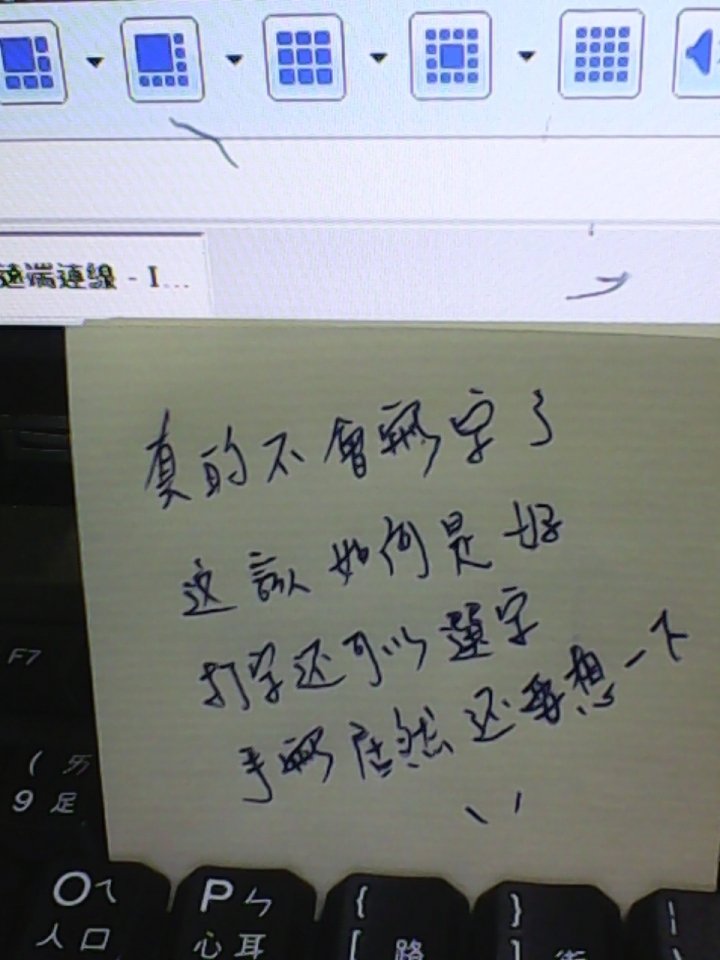 遠端連線 - I...
真的不會寫字了
这該如何是好
打字还可以選字
手寫居然还要想一下
F7
( ㄞ
9 足
O ㄟ
人 口
P ㄣ
心 耳
{
[ 路
}
]
|
\